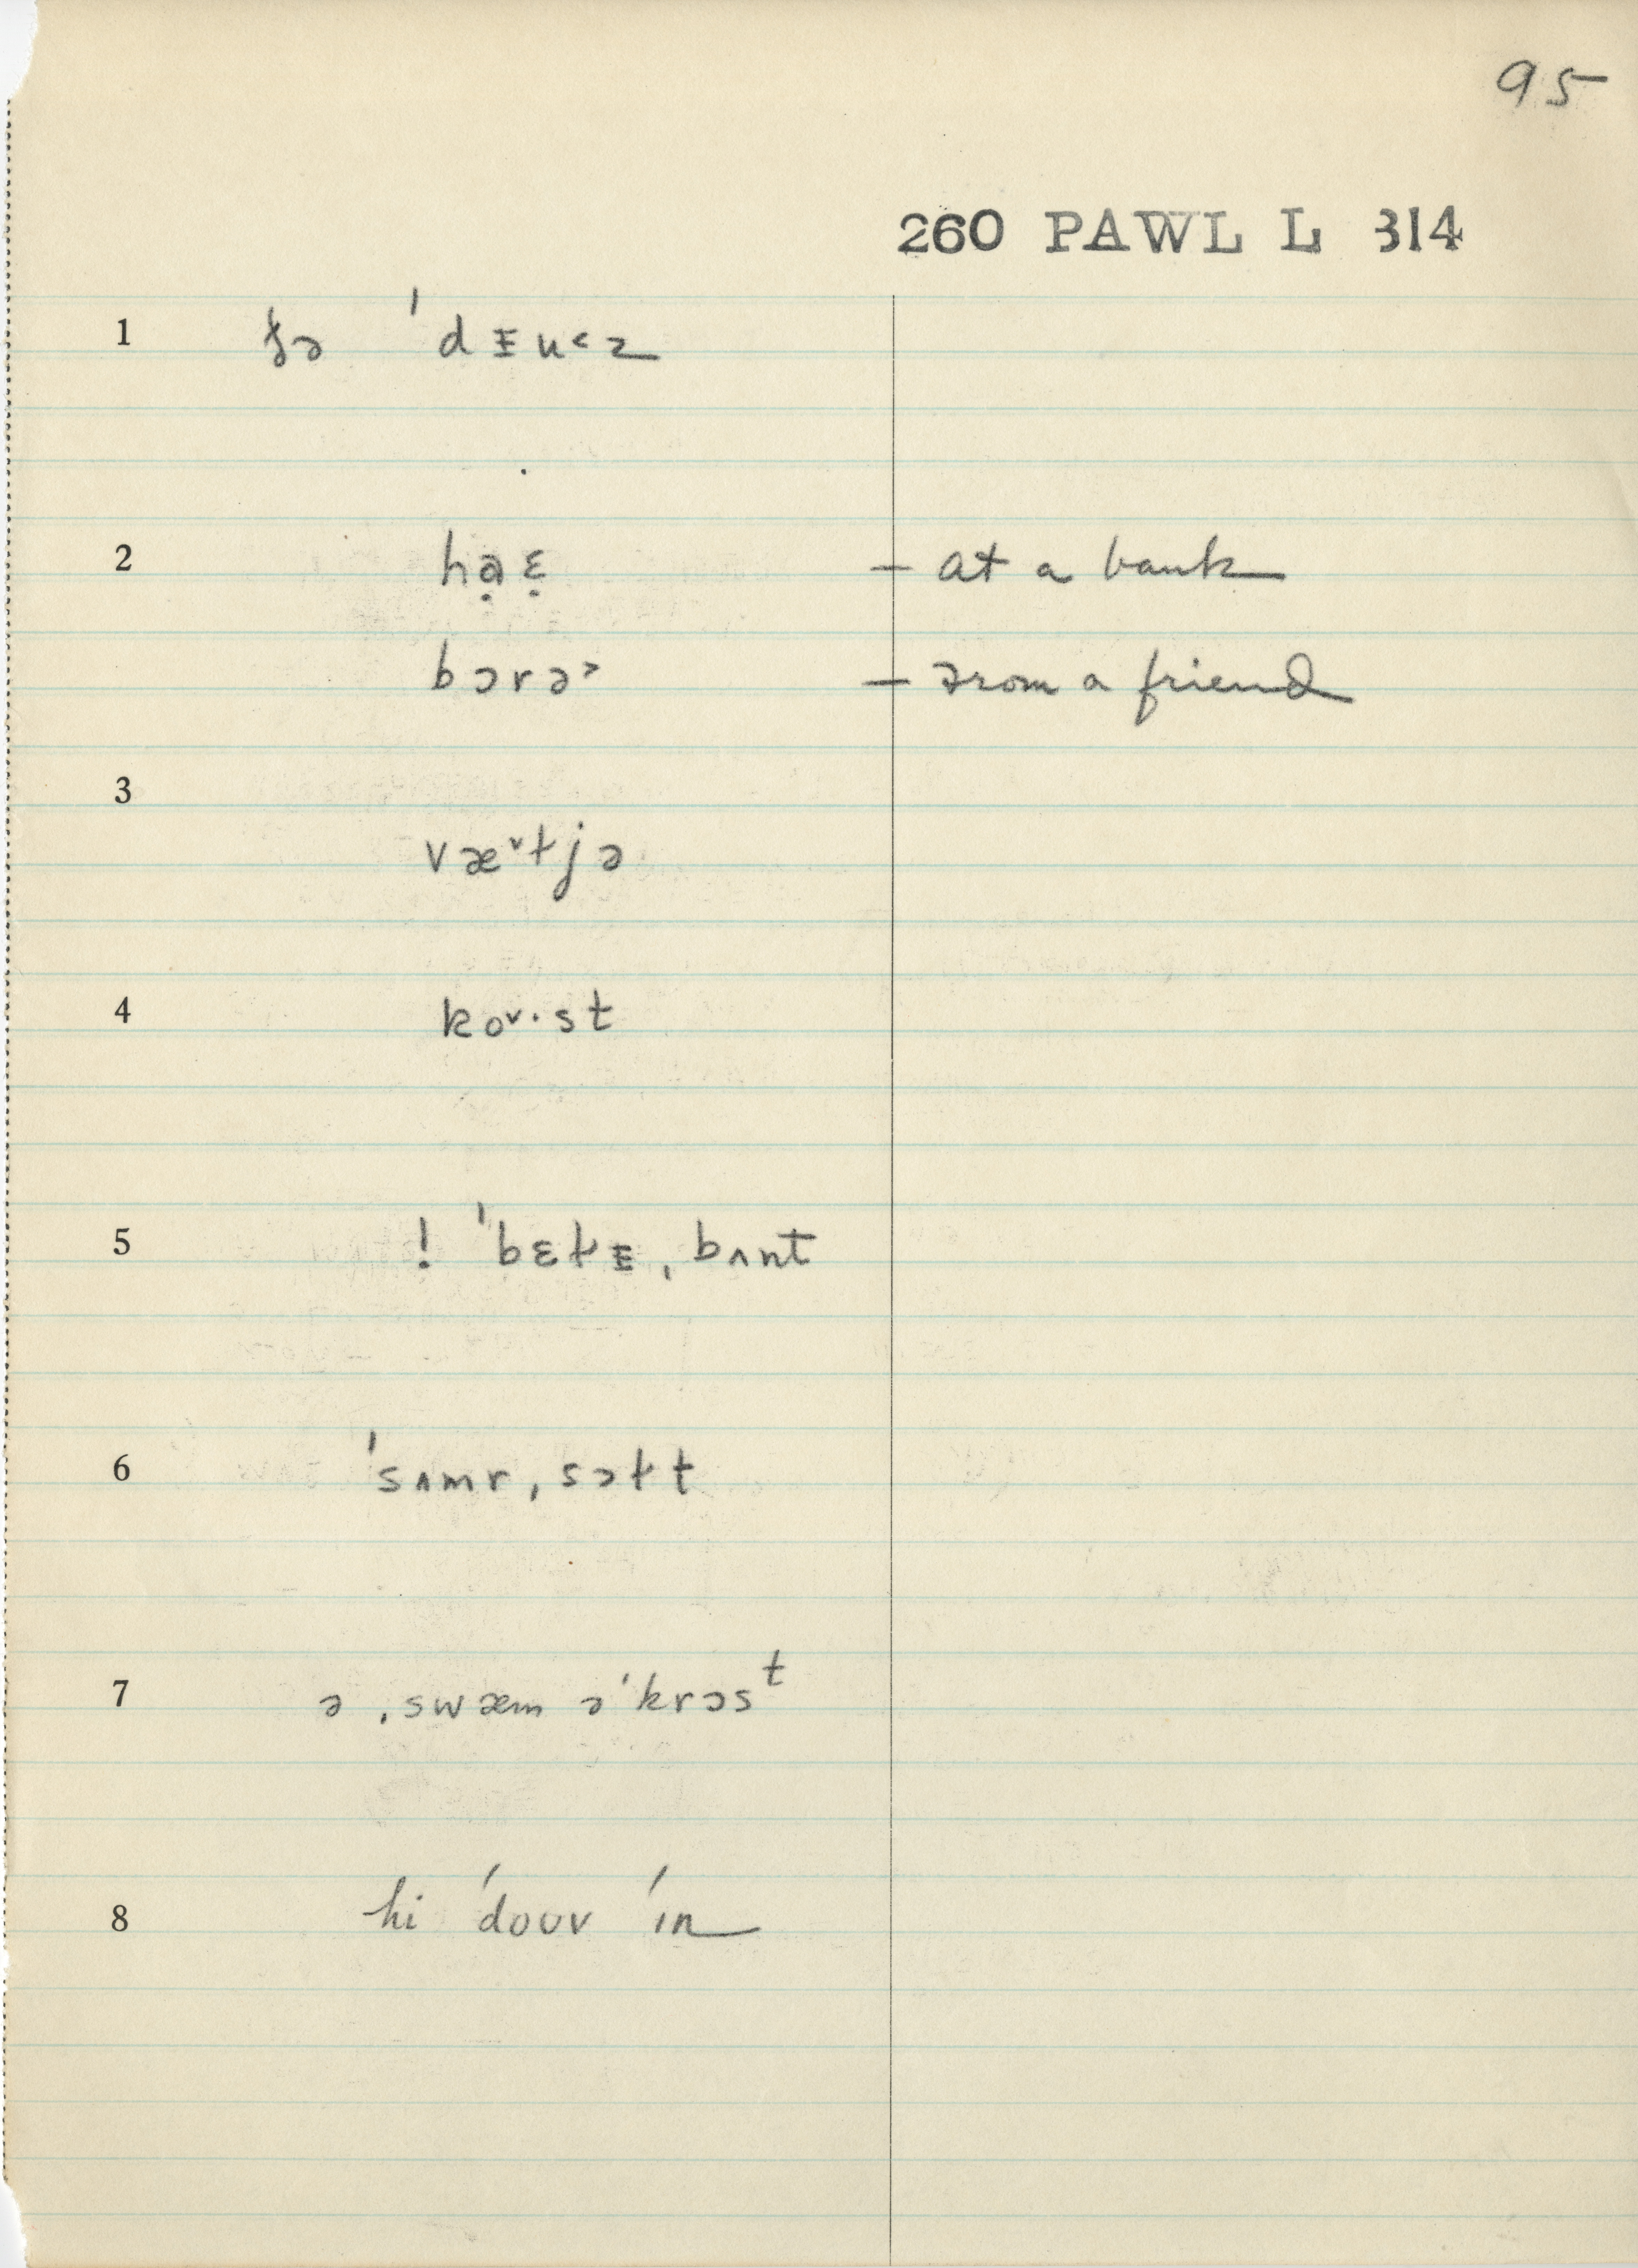 95
260 PAWL L 314
1 ðə ˈdɪu˂z
2 hạɛ̣ – at a bank
bɔrə˃ – from a friend
3
væ˅ɫjə
4 ko˅·st
5 ! ˈbɛɫɪ ˌbʌnt
6 ˈsʌmr ˌsɔɫt
7 ə ˌswæm əˈkrɔsᵗ
8 hi ˈdoʊv ˈɪn